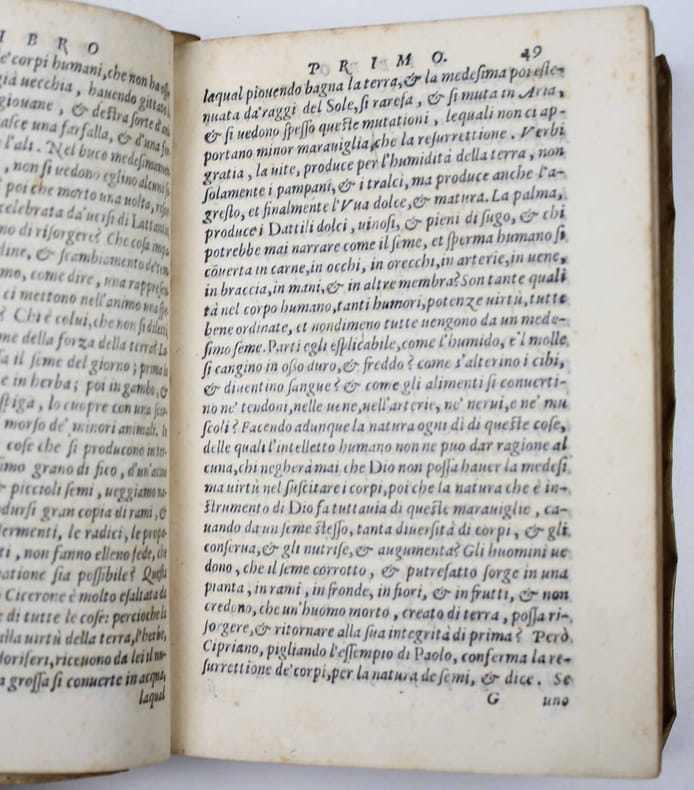 I B R O
e' corpi humani, che non ha
già uecchia, hauendo gittat
giouane, & destra sorte d
asce una farfalla, & d'una
l'ali. Nel buco medesimamen
, non si uedono eglino alcuni
poi che morto una uolta,
celebrata da' uersi di Lattan
no di risorgere? Che cosa
dine, & scambiamento de'
mo, come dire, una rappresen
ci mettono nell'animo una
? Chi è colui, che non si diletti
me della forza della terra?
sa il seme del giorno; prima
e in herba; poi in gambo, &
spiga, lo cuopre con una
morso de' minori animali.
cose che si producono
simo grano di fico, d'un
piccioli semi, ueggiamo
dursi gran copia di rami, &
fermenti, le radici, le
ti, non fanno elleno fede, che
atione sia possibile? Questa
Cicerone è molto esaltata da
di tutte le cose: percioche la
alla uirtù della terra, l'herbe,
doriferi, riceuono da lei il
a grossa si conuerte in acqua,
laqual
P R I M O. 49
laqual piouendo bagna la terra, & la medesima poi este-
nuata da' raggi del Sole, si rarefa, & si muta in Aria,
& si uedono spesso queste mutationi, lequali non ci ap-
portano minor marauiglia, che la resurrettione. Verbi
gratia, la uite, produce per l'humidità della terra, non
solamente i pampani, & i tralci, ma produce anche l'a-
gresto, et finalmente l'Vua dolce, & matura. La palma,
produce i Dattili dolci, uinosi, & pieni di sugo, & chi
potrebbe mai narrare come il seme, et sperma humano si
cōuerta in carne, in occhi, in orecchi, in arterie, in uene,
in braccia, in mani, & in altre membra? Son tante quali
tà nel corpo humano, tanti humori, potenze uirtù, tutte
bene ordinate, et nondimeno tutte uengono da un mede-
simo seme. Parti egli esplicabile, come l'humido, e'l molle
si cangino in osso duro, & freddo? come s'alterino i cibi,
& diuentino sangue? & come gli alimenti si conuerti-
no ne' tendoni, nelle uene, nell'arterie, ne' nerui, e ne' mu
scoli? Facendo adunque la natura ogni dì di queste cose,
delle quali l'intelletto humano non ne puo dar ragione al
cuna, chi negherà mai che Dio non possa hauer la medesi
ma uirtù nel suscitare i corpi, poi che la natura che è in-
strumento di Dio fa tuttauia di queste marauiglie, ca-
uando da un seme stesso, tanta diuersità di corpi, & gli
conserua, & gli nutrisce, & augumenta? Gli huomini ue
dono, che il seme corrotto, & putrefatto sorge in una
pianta, in rami, in fronde, in fiori, & in frutti, & non
credono, che un'huomo morto, creato di terra, possa ri-
sorgere, & ritornare alla sua integrità di prima? Però
Cipriano, pigliando l'essempio di Paolo, conferma la re-
surrettione de' corpi, per la natura de semi, & dice. Se
G uno